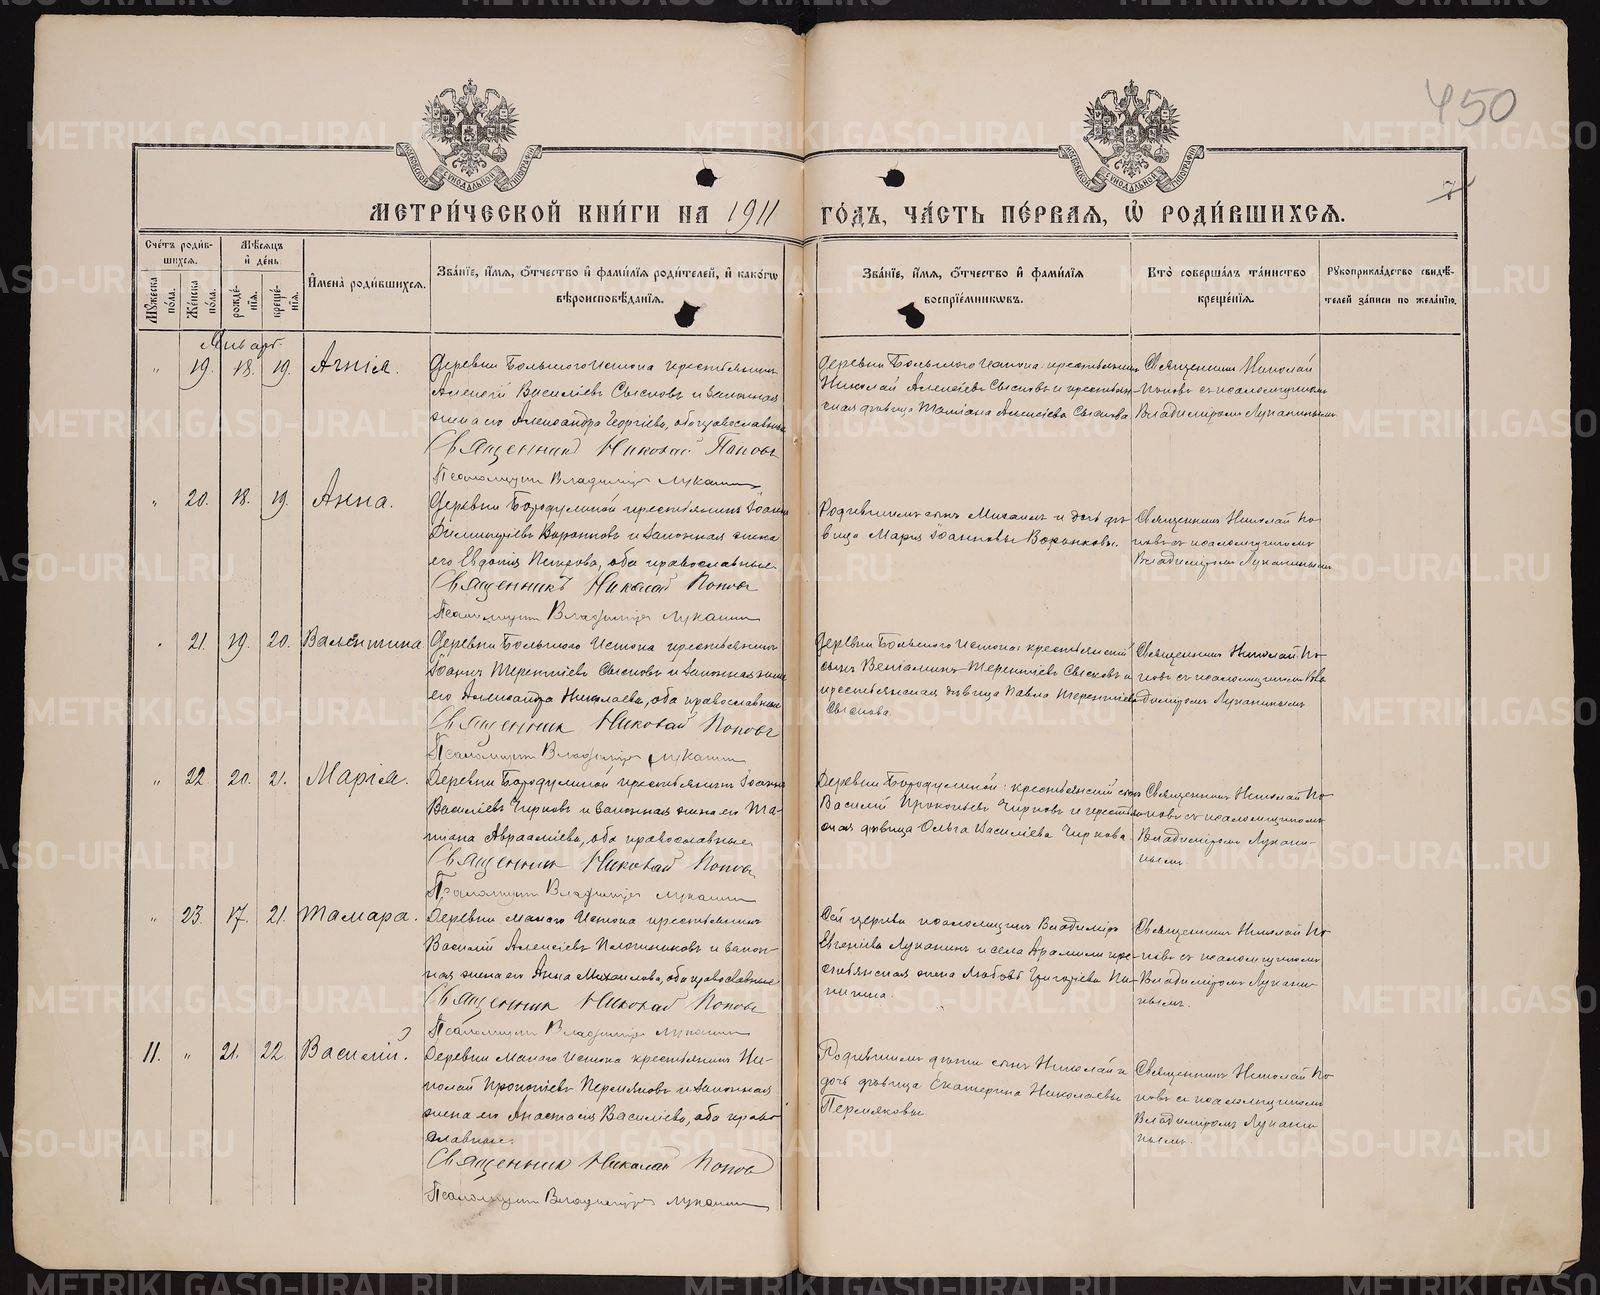 450
7
МОСКОВСКОЙ СѴНОДАЛЬНОЙ ТИПОГРАФІИ
МОСКОВСКОЙ СѴНОДАЛЬНОЙ ТИПОГРАФІИ
МЕТРИ́ЧЕСКОЙ КНИ́ГИ НА 1911 ГО́ДЪ, ЧА́СТЬ ПЕ́РВАЯ, Ѽ РОДИ́ВШИХСЯ.
Сче́тъ роди́в-
шихся.
Мꙋ́жеска по́ла.
Же́нска по́ла.
Мѣ́сяцъ
и҆ де́нь
рожде́-
нїя.
креще́-
нїя.
И҆мена̀ роди́вшихся.
Зва́нїе, и҆́мя, ѻ҆́тчество и҆ фами́лїя роди́телей, и҆ како́гѡ
вѣроисповѣ́данїя.
Зва́нїе, и҆́мя, ѻ҆́тчество и҆ фами́лїя
воспрїе́мникѡвъ.
Кто̀ соверша́лъ та́инство
креще́нїя.
Рꙋкоприкла́дство свидѣ́-
телей за́писи по жела́нїю.
Январь.
„ 19. 18. 19. Агнія.
Деревни Большого Истока крестьянинъ
Алексѣй Васильевъ Сысковъ и законная
жена его Александра Георгіева, оба православные
Священникъ Николай Поповъ
Псаломщикъ Владиміръ Луканинъ
Деревни Большого Истока: крестьянинъ
Николай Алексѣевъ Сысковъ и крестьян-
ская дѣвица Татіана Алексѣева Сыскова.
Священникъ Николай
Поповъ съ псаломщикомъ
Владиміромъ Луканинымъ
„ 20. 18. 19. Анна.
Деревни Бородулиной крестьянинъ Іоаннъ
Димитріевъ Воронковъ и законная жена
его Евдокія Петрова, оба православные
Священникъ Николай Поповъ
Псаломщикъ Владиміръ Луканинъ
Родившимъ сынъ Михаилъ и дочь дѣ-
вица Марія Іоанновы Воронковы.
Священникъ Николай По-
повъ съ псаломщикомъ
Владиміромъ Луканинымъ
„ 21. 19. 20. Валентина
Деревни Большого Истока крестьянинъ
Іоаннъ Терентіевъ Сысковъ и законная жена
его Александра Николаева, оба православные
Священникъ Николай Поповъ
Псаломщикъ Владиміръ Луканинъ
Деревни Большого Истока: крестьянскій
сынъ Веніаминъ Терентіевъ Сысковъ и
крестьянская дѣвица Павла Терентіева
Сыскова.
Священникъ Николай По-
повъ съ псаломщикомъ Вла-
диміромъ Луканинымъ
„ 22 20. 21. Марія.
Деревни Бородулиной крестьянинъ Іоаннъ
Васильевъ Чирковъ и законная жена его Та-
тіана Авраамиева, оба православные
Священникъ Николай Поповъ
Псаломщикъ Владиміръ Луканинъ
Деревни Бородулиной: крестьянскій сынъ
Василій Прокопьевъ Чирковъ и крестьян-
ская дѣвица Ольга Василіева Чиркова.
Священникъ Николай По-
повъ съ псаломщикомъ
Владиміромъ Лукани-
нымъ
„ 23. 17. 21. Тамара.
Деревни Малаго Истока крестьянинъ
Василій Алексѣевъ Плотниковъ и закон-
ная жена его Анна Михаилова, оба православные
Священникъ Николай Поповъ
Псаломщикъ Владиміръ Луканинъ
Сей церкви псаломщикъ Владиміръ
Евгеніевъ Луканинъ и села Арамили кре-
стьянская жена Любовь Григоріева
Священникъ Николай По-
повъ съ псаломщикомъ
Владиміромъ Лукани-
нымъ.
11. „ 21. 22. Василій.
Деревни Малаго Истока крестьянинъ Ни-
колай Прокопіевъ Пермяковъ и законная
жена его Анастасія Василіева, оба право-
славные.
Священникъ Николай Поповъ
Псаломщикъ Владиміръ Луканинъ
Родившимъ дѣти сынъ Николай и
дочь дѣвица Екатерина Николаевы
Пермяковы
Священникъ Николай По-
повъ съ псаломщикомъ
Владиміромъ Лукани-
нымъ.
METRIKI.GASO-URAL.RU